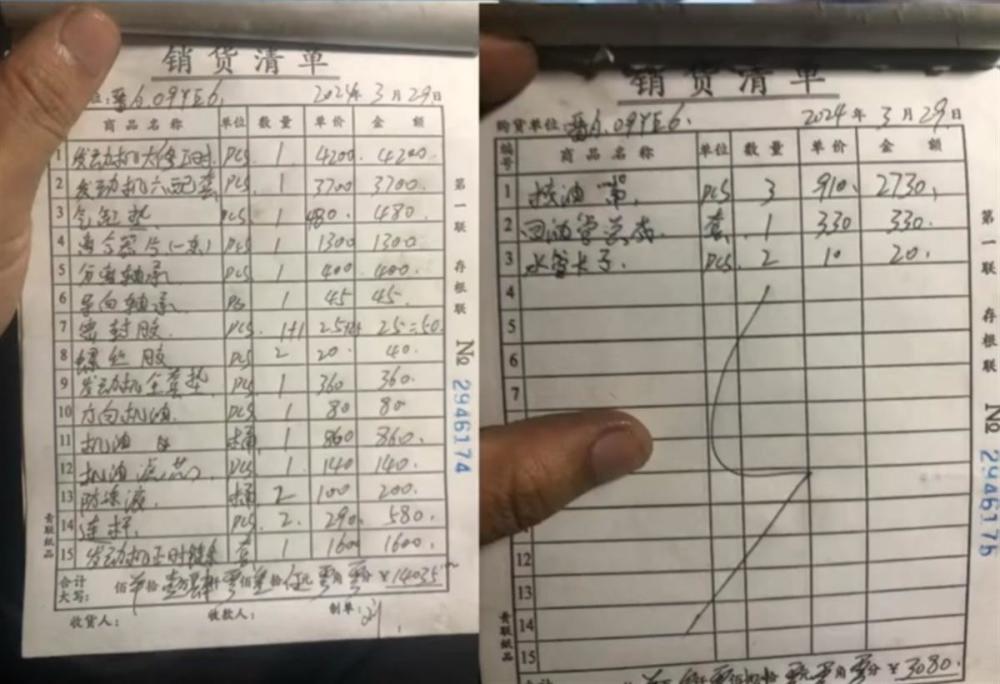 销货清单
晋A.09YE6. 2024年3月29日
商品名称 单位 数量 单价 金额
1 发动机大修工时 PCS 1 4200 4200.
2 发动机六配套 PCS 1 3700 3700.
3 气缸垫 PCS 1 480. 480.
4 离合器片(一套) PCS 1 1300 1300.
5 分离轴承 PCS 1 400 400.
6 导向轴承 PCS 1 45 45.
7 密封胶 PCS 1+1 25 = 50.
8 螺丝胶 PCS 2 20. 40.
9 发动机全套垫 PCS 1 360 360.
10 方向机油 PCS 1 80 80
11 机油 桶 1 860 860.
12 机油滤芯 PCS 1 140 140.
13 防冻液 桶 2 100 200.
14 连杆 PCS 2. 290 580.
15 发动机正时链条 套 1 1600 1600.
合计
大写: 佰 拾 壹万肆仟零佰 拾伍元零角零分 ¥14035
收货人: 收款人: 制单:
第一联 存根联 № 2946174
青联纸品
销货清单
购货单位:晋A.09YE6. 2024年3月29日
编号 商品名称 单位 数量 单价 金额
1 PCS 3 910. 2730.
2 回油管总成 套 1 330 330.
3 水管卡子. PCS 2 10 20.
4
5
6
7
12
13
14
15
¥3080.
第一联 存根联 № 2946175
青联纸品